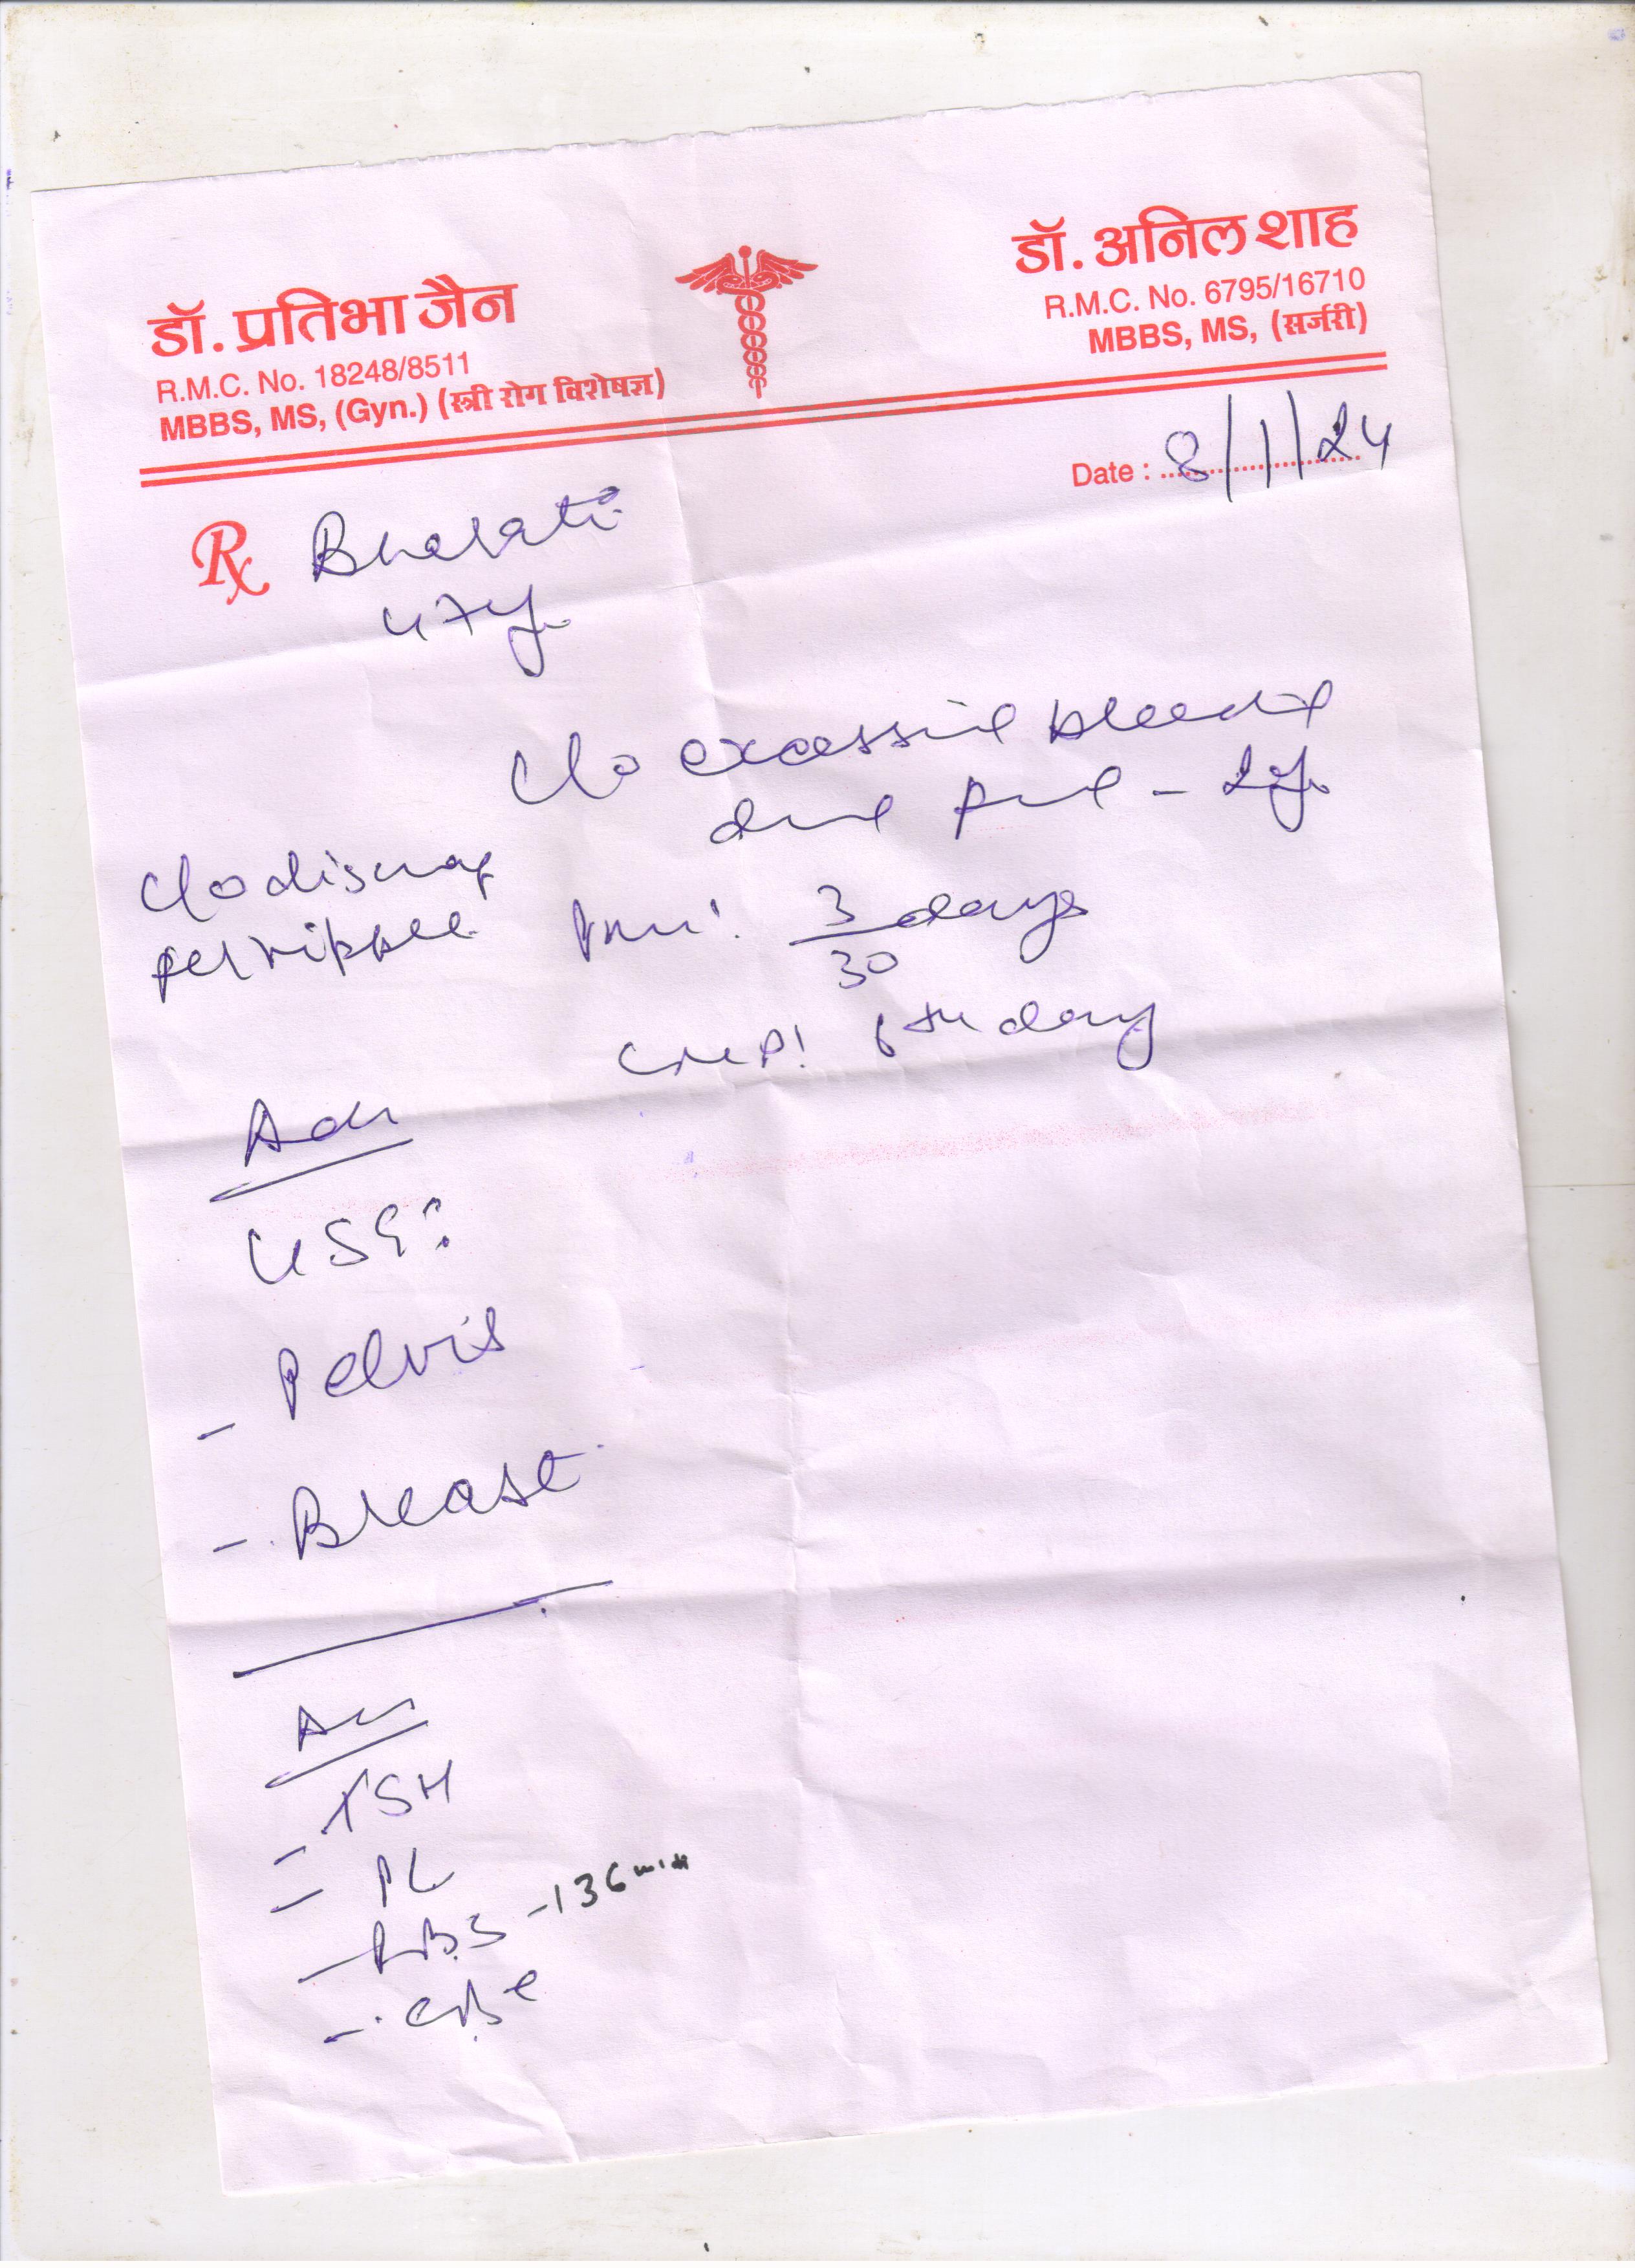 डॉ. प्रतिभा जैन
R.M.C. No. 18248/8511
MBBS, MS, (Gyn.) (स्त्री रोग विशेषज्ञ)
डॉ. अनिल शाह
R.M.C. No. 6795/16710
MBBS, MS, (सर्जरी)
Date : 8/1/24
Rx Bharati
47y.
C/o excessive bleeding
- 2y.
C/o discharge
per nipple
3 days
30
6th day
Adv
USG:
- Pelvis
- Breast
Adv
- TSH
- PL
- RBS - 136
- CBC